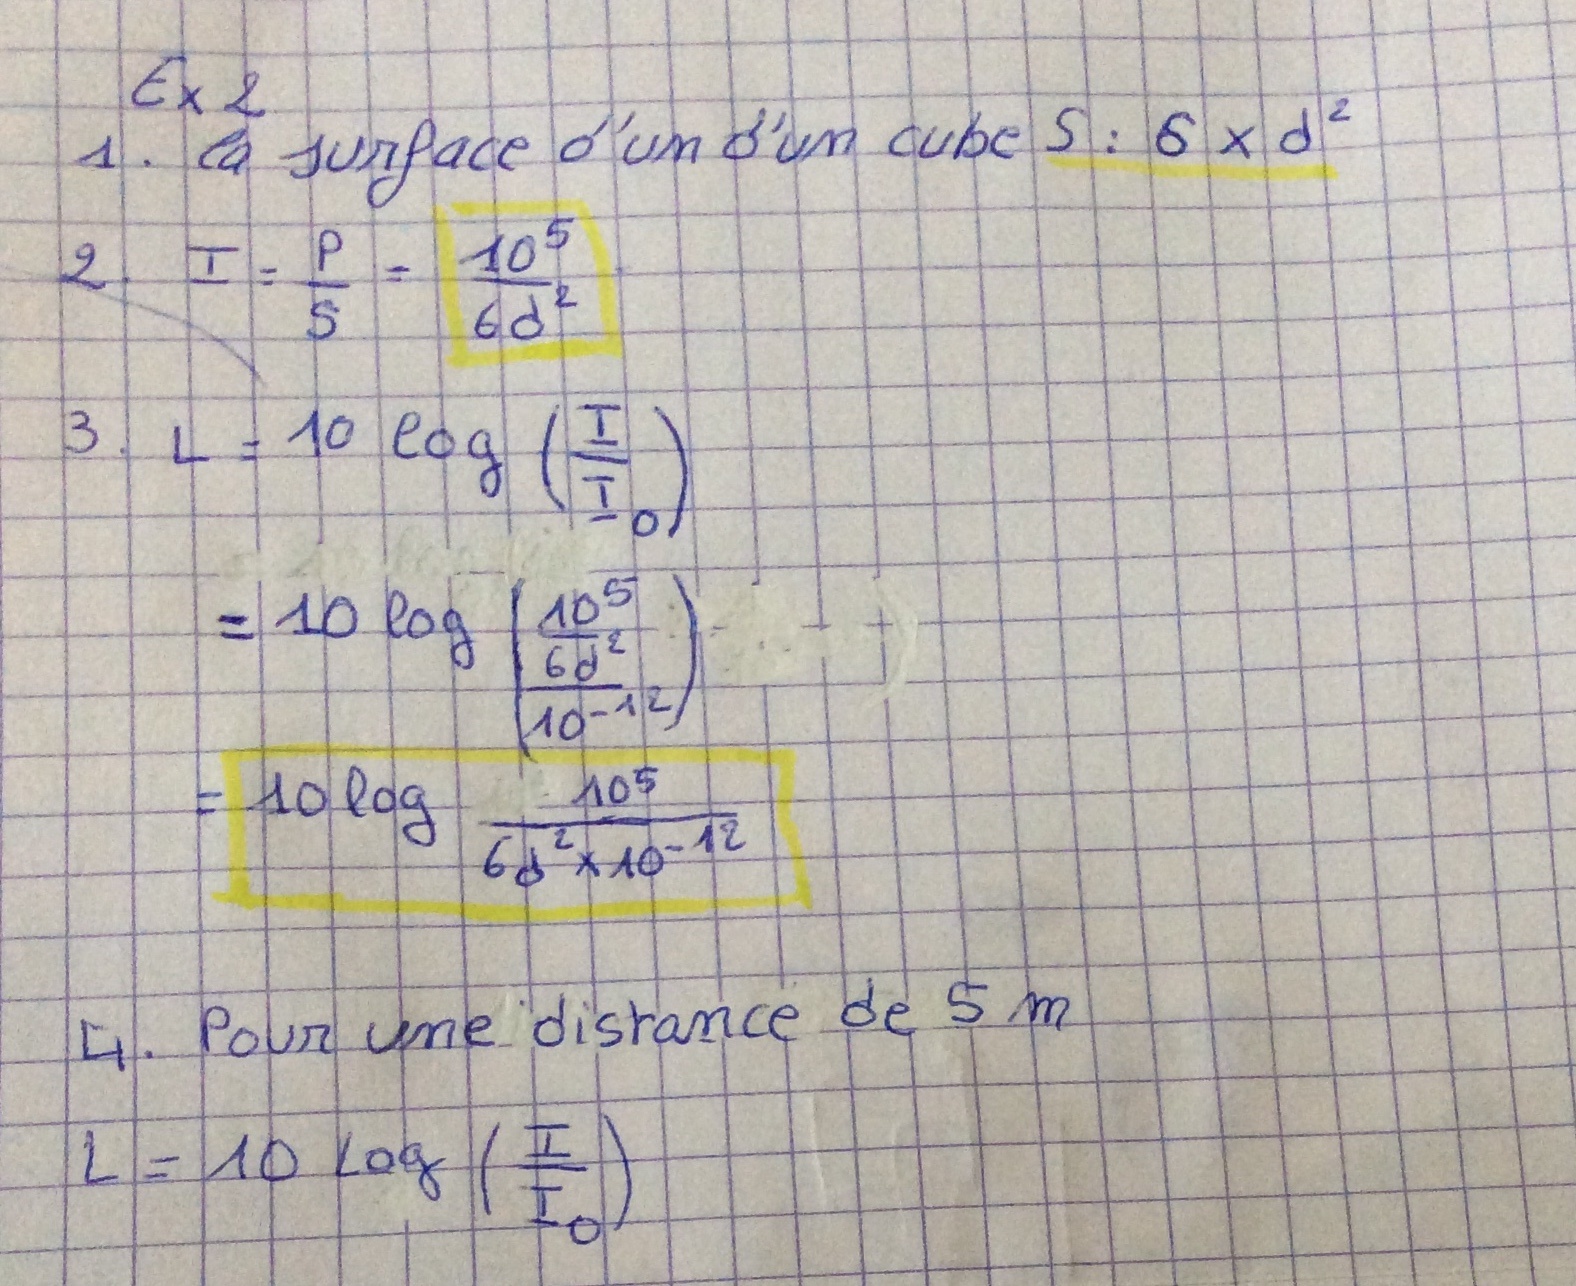 Ex 2
1. la surface d'un d'un cube S : 6 x d²
2. I = P/S = 10⁵/6d²
3. L = 10 log (I/I₀)
= 10 log ((10⁵/6d²)/10⁻¹²)
= 10 log 10⁵/(6d² x 10⁻¹²)
4. Pour une distance de 5 m
L = 10 Log (I/I₀)